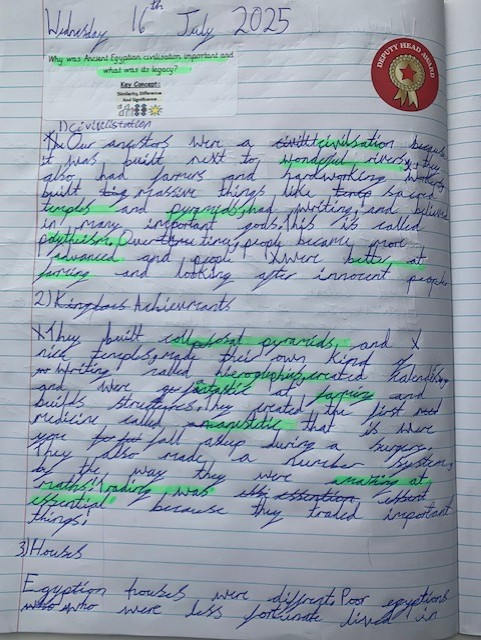 Wednesday 16th July 2025
Why was Ancient Egyptian civilisation important and
what was its legacy?
Key Concept:
Similarity, Difference
And Significance
DEPUTY HEAD AWARD
1) Civilistation
Our ancestors were a civilsation because
it was built next to wonderful rivers, they
also had farmers and hardworking workers,
built massive things like sacred
temples and pyramids, had writing, and believed
in many important gods, this is called
polytheism. Over time, people became more
advanced and people were better at
farming and looking after innocent people.
2) Achievmants
They built collosal pyramids, and
nice temples, made their own kind of
writing called hieroglyphics, created kalendars
and were fantastic at farming and
builds structures. They created the first
medicine called that is were
you fall asleep during a surgery.
They also made a number system,
by the way they were amazing at
maths! Trading was
essential because they traded important
things!
3) Houses
Egyption houses were diffrent. Poor egyptions
who were less fortunate lived in